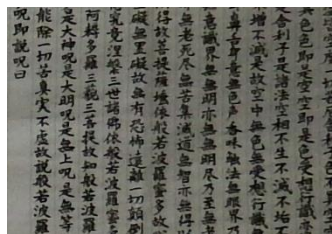 異色色即是空空即是色受想行識亦
是舍利子是諸法空相不生不滅不垢不
增不減是故空中無色無受想行識
意無色聲香味觸法無眼界乃
意識界無無明亦無無明盡乃至無
無老死盡無苦集滅道無智亦無得以
得故菩提薩埵依般若波羅蜜多故
礙無罣礙故無有恐怖遠離一切顛倒
究竟涅槃三世諸佛依般若波羅蜜多
阿耨多羅三藐三菩提故知般若波羅
是大神呪是大明呪是無上呪是無等
能除一切苦真実不虛故說般若波羅
呪即說呪曰